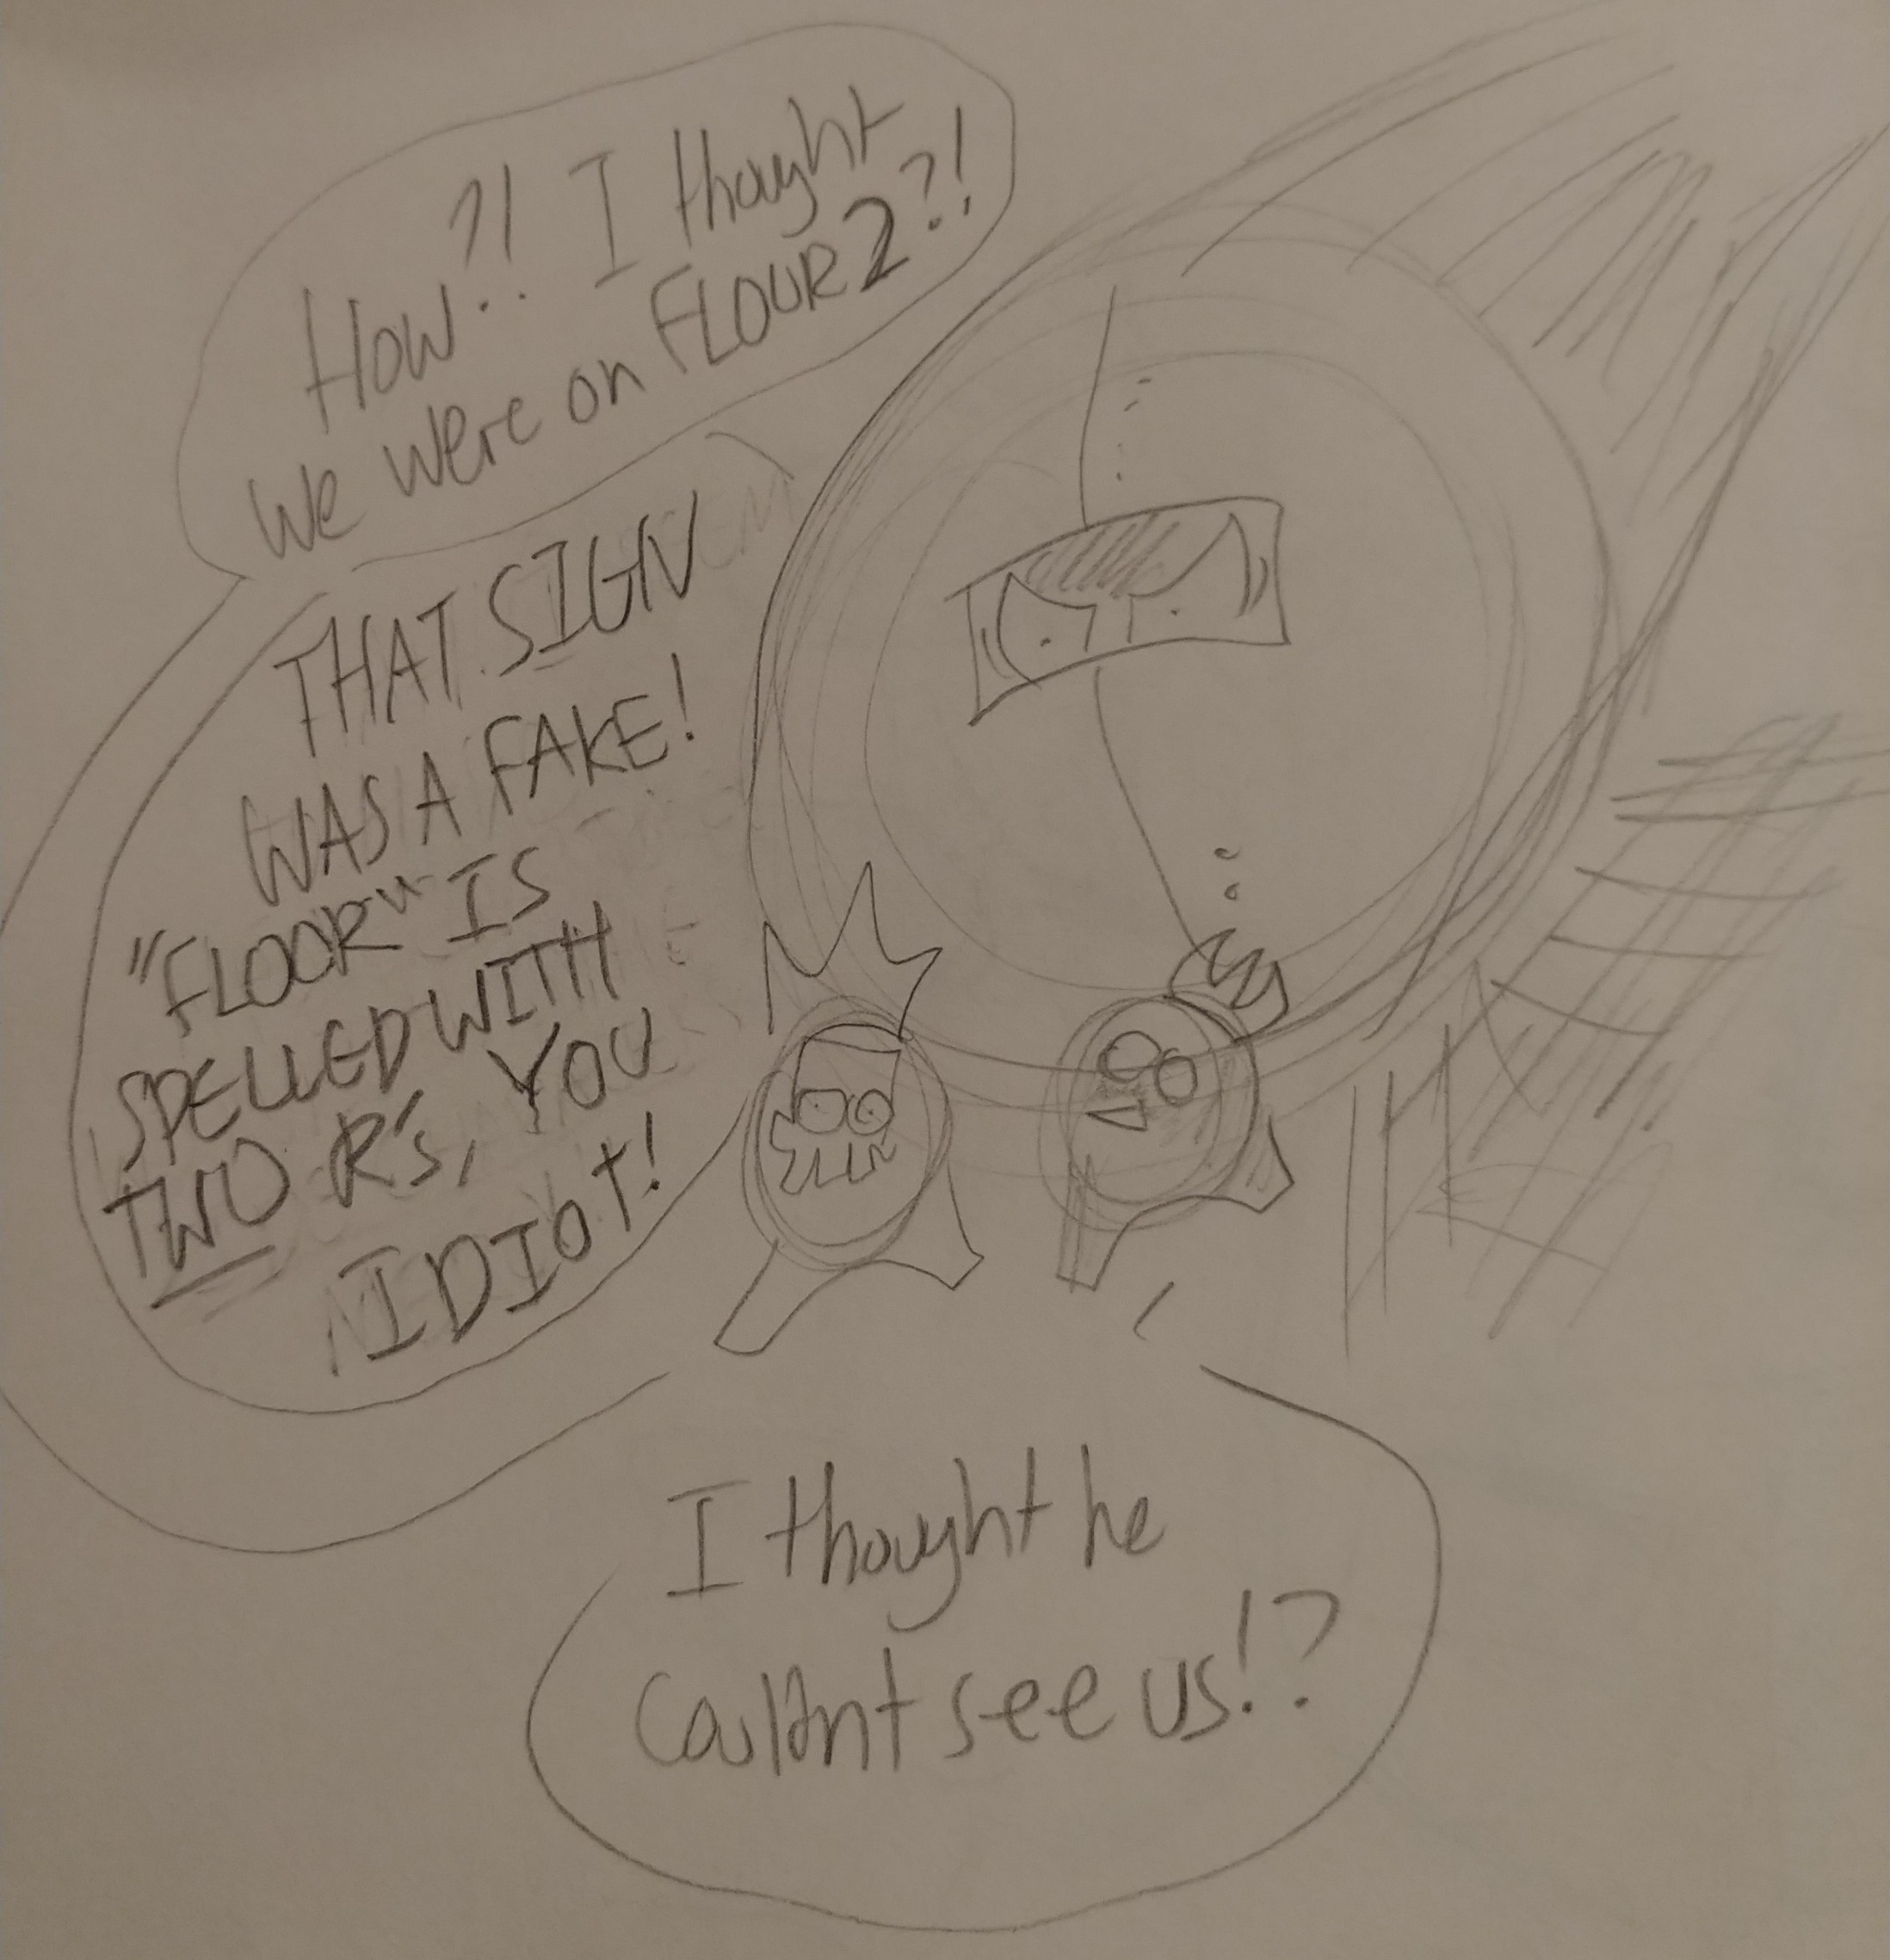 How?! I thought
we were on FLOUR 2?!
THAT SIGN
WAS A FAKE!
"FLOOR" IS
SPELLED WITH
TWO R'S, YOU
IDIOT!
I thought he
Couldnt see us!?